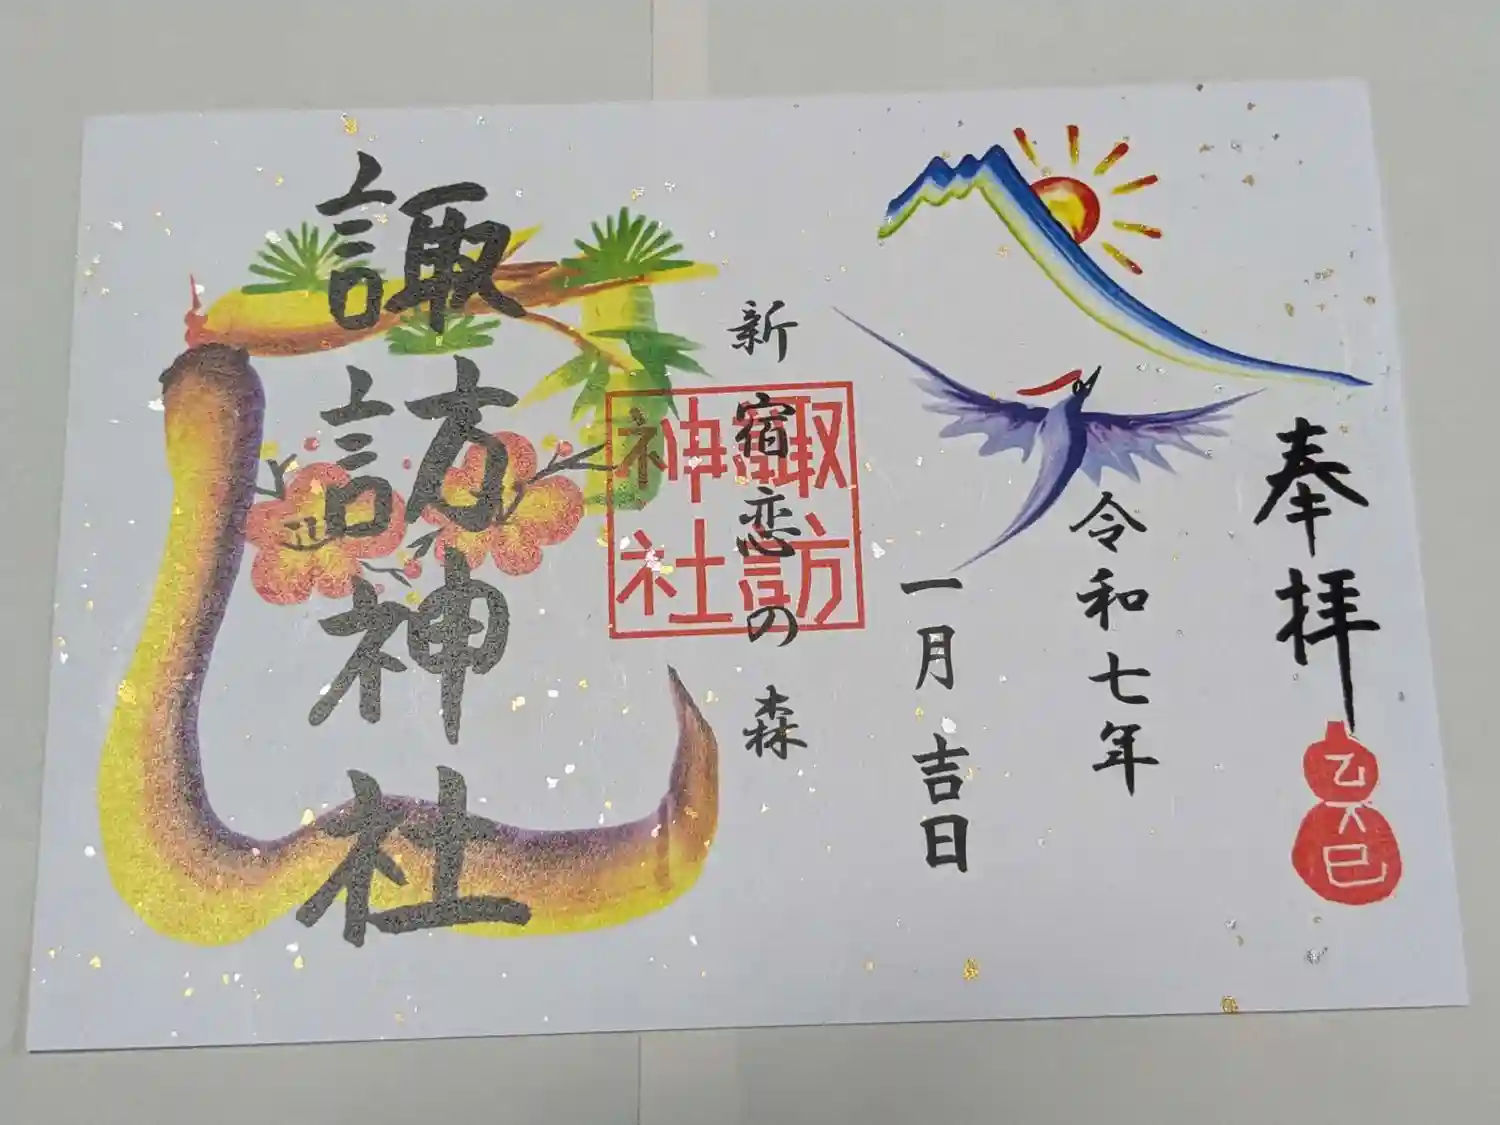 奉拝
乙巳
令和七年
一月吉日
新宿恋の森
諏訪神社
諏訪神社